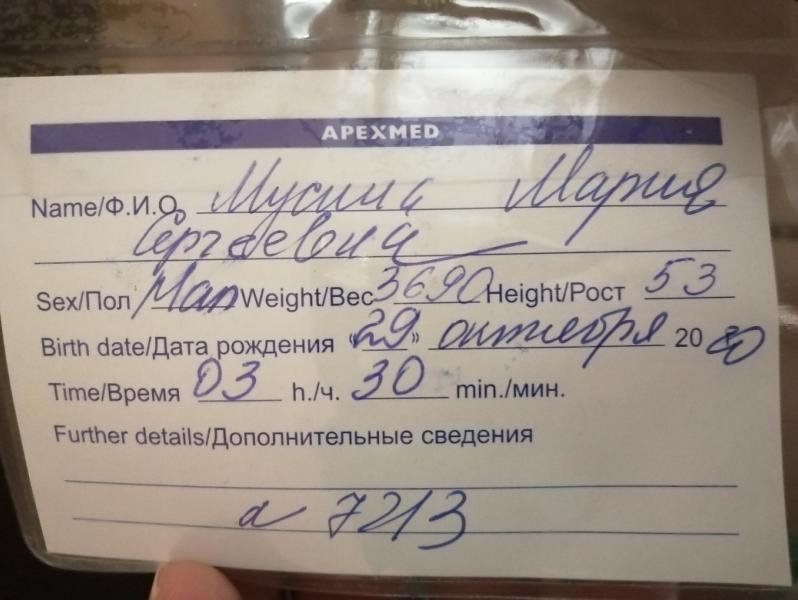 APEXMED
Name/Ф.И.О. Мусина Мария
Сергеевна
Sex/Пол Мал Weight/Вес 3690 Height/Рост 53
Birth date/Дата рождения «29» октября 2020
Time/Время 03 h./ч. 30 min./мин.
Further details/Дополнительные сведения
7213